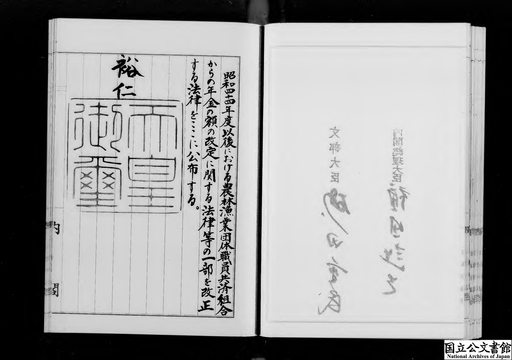 昭和四十四年度以後における農林漁業団体職員共済組合
からの年金の額の改定に関する法律等の一部を改正
する法律をここに公布する。
裕仁
天皇
御璽
内閣
内閣総理大臣
文部大臣
国立公文書館
National Archives of Japan